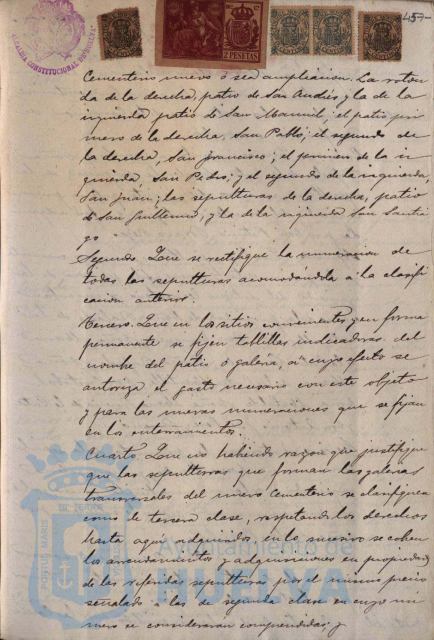 457
ALCALDIA CONSTITUCIONAL DE HUELVA
2 PESETAS
Cementerio nuevo ó sea ampliacion. La roton
da de la derecha, patio de San Andrés y la de la
izquierda patio de San Manuel; el patio pri
mero de la derecha, San Pablo; el segundo de
la derecha, San Francisco; el primero de la iz
quierda, San Pedro; y el segundo de la izquierda,
San Juan; las sepulturas de la derecha, patio
de San Guillermo, y la de la izquierda San Santia
go
Segundo. Que se rectifique la numeracion de
todas las sepulturas acomodándola a la clasifi
cacion anterior.
Tercero. Que en los sitios convenientes y en forma
permanente se fijen tablillas indicadoras del
nombre del patio ó galería, á cuyo efecto se
autoriza el gasto necesario con este objeto
y para las nuevas numeraciones que se fijan
en los enterramientos.
Cuarto. Que no habiendo razon que justifique
que las sepulturas que forman las galerias
transversales del nuevo Cementerio se clasifiquen
como de tercera clase, respetando los derechos
hasta aquí adquiridos, en lo sucesivo se cobren
los arrendamientos y adquisiciones en propiedad
de las referidas sepulturas por el mismo precio
señalado a las de segunda clase en cuyo nú
mero se considerarán comprendidas; y
Ayuntamiento de
HUELVA
PORTUS MARIS